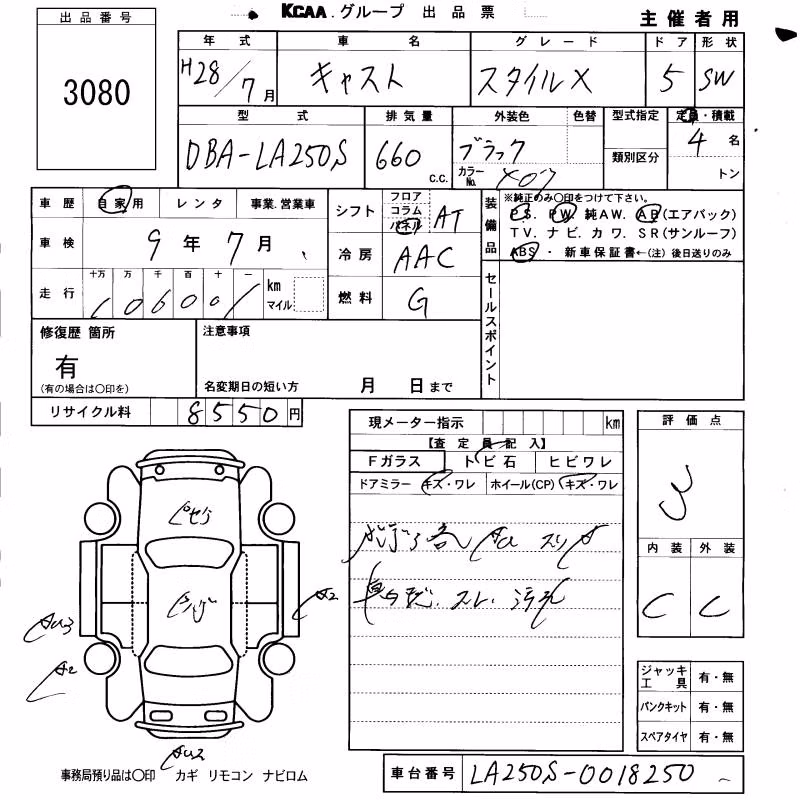 KCAA. グループ 出品票
主催者用
出品番号
3080
年式 車名 グレード ドア 形状
H28/7月 キャスト スタイルX 5 SW
型式 排気量 外装色 色替 型式指定 定員・積載
DBA-LA250S 660 c.c. ブラック カラーNo. X07 類別区分 4名
トン
車歴 自家用 レンタ 事業.営業車
シフト フロア コラム パネル AT
装備品 ※純正のみ○印をつけて下さい。
P.S. PW. 純AW. AB(エアバック)
TV. ナビ. カワ. SR(サンルーフ)
ABS・新車保証書←(注)後日送りのみ
車検 9年7月
冷房 AAC
走行 十万 万 千 百 十 一 km マイル
106001
燃料 G
セールスポイント
修復歴 箇所
有
(有の場合は○印を)
注意事項
名変期日の短い方 月 日まで
リサイクル料 8550円
現メーター指示 km
【査定員記入】
Fガラス トビ石 ヒビワレ
ドアミラー キズ・ワレ ホイール(CP) キズ・ワレ
評価点
3
内装 外装
C C
スレ
A2
A2
ジャッキ工具 有・無
パンクキット 有・無
スペアタイヤ 有・無
事務局預り品は○印 カギ リモコン ナビロム
車台番号 LA250S-0018250